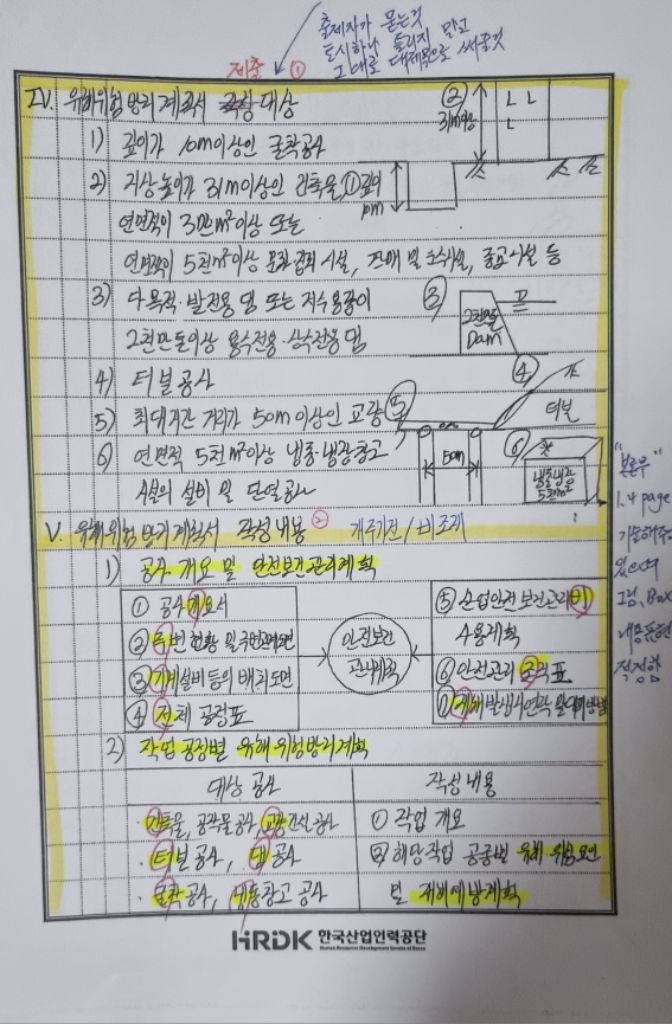 출제자가 묻는것
토시하나 틀리지 말고
그대로 대제목으로 써줄것
제출 ①
IV. 유해위험방지계획서 작성대상
② 31m이상
1) 깊이가 10m이상인 굴착공사
2) 지상높이가 31m이상인 건축물, ① 깊이
10m
연면적이 3만m²이상 또는
연면적이 5천m²이상 문화·집회시설, 판매 및 운수시설, 종교시설 등
3) 다목적·발전용 댐 또는 저수용량이
③ 2천만톤 Dam
2천만톤이상 용수전용·상수전용 댐
4) 터널공사
④ 터널
5) 최대지간 거리가 50m이상인 교량
⑤ 50m
6) 연면적 5천m²이상 냉동·냉장창고
⑥ 냉동냉장 5천m²
시설의 설비 및 단열공사
V. 유해위험방지계획서 작성내용 ② 개주기전/비조재
1) 공사개요 및 안전보건관리계획
① 공사개요서
② 주변현황 및 주변관계도면
③ 기계설비등의 배치도면
④ 전체 공정표
안전보건
관리계획
⑤ 산업안전보건관리비
사용계획
⑥ 안전관리 조직표
⑦ 재해발생시 연락 및 대피방법
"본론부"
1.4 page
기술해주
있으며
그림, Box
내용 표현
적정함
2) 작업공정별 유해위험방지계획
대상공사 작성내용
· 건축물, 공작물공사, 교량건설공사 ① 작업개요
· 터널공사, 댐공사 ② 해당작업 공종별 유해·위험요인
· 굴착공사, 냉동창고 공사 및 재해예방계획
HRDK 한국산업인력공단
Human Resources Development Service of Korea